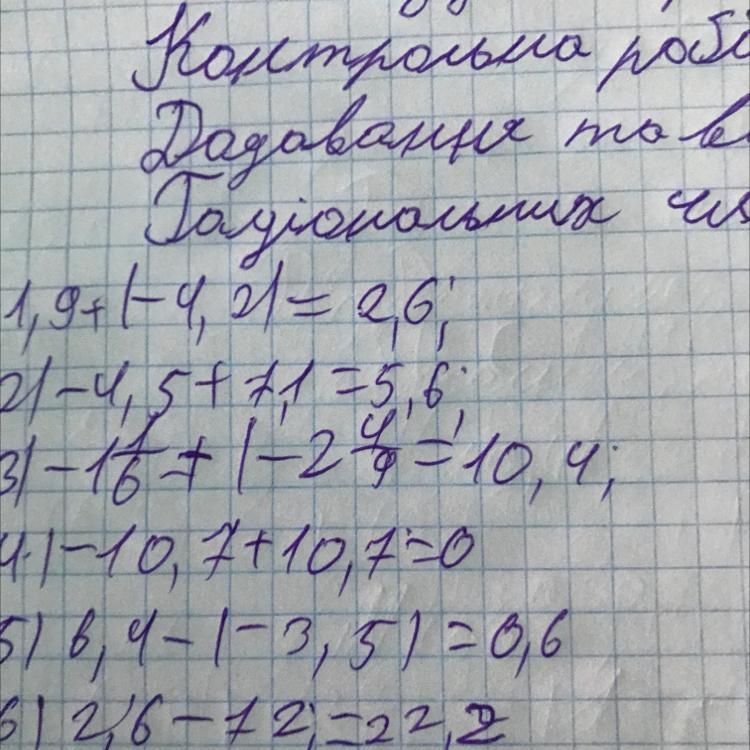 Контрольна робо
Додавання та в
Раціональних чис
1,9+(-4,2)=2,6;
2)-4,5+7,1=5,6;
3)-1 1/6+(-2 4/9=10,4;
4)-10,7+10,7=0
5) 6,4-(-3,5)=0,6
6) 2,6-72,=22,2